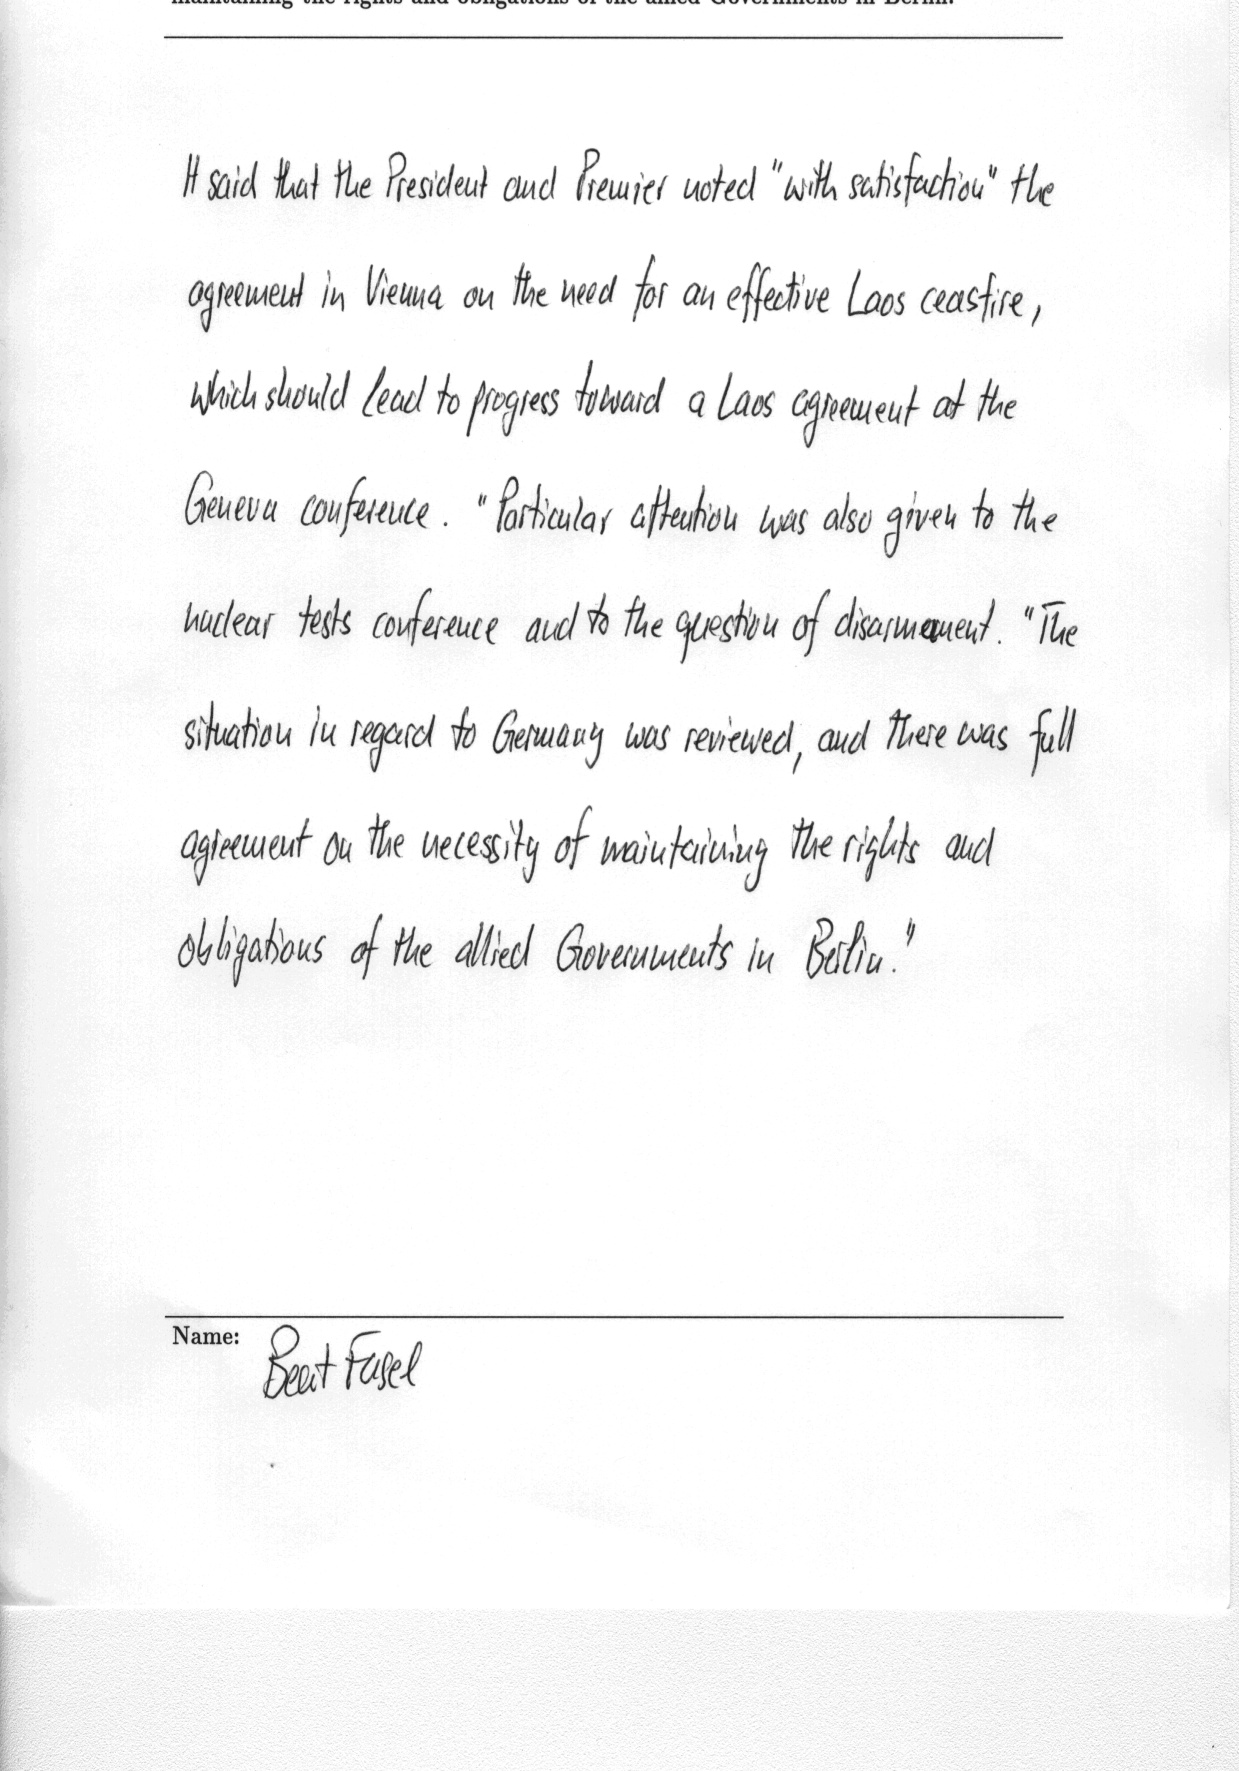 maintaining the rights and obligations of the allied Governments in Berlin."
It said that the President and Premier noted "with satisfaction" the
agreement in Vienna on the need for an effective Laos ceasfire,
which should lead to progress toward a Laos agreement at the
Geneva conference. "Particular attention was also given to the
nuclear tests conference and to the question of disarmament. "The
situation in regard to Germany was reviewed, and there was full
agreement on the necessity of maintaining the rights and
obligations of the allied Governments in Berlin."
Name:
Beat Fasel